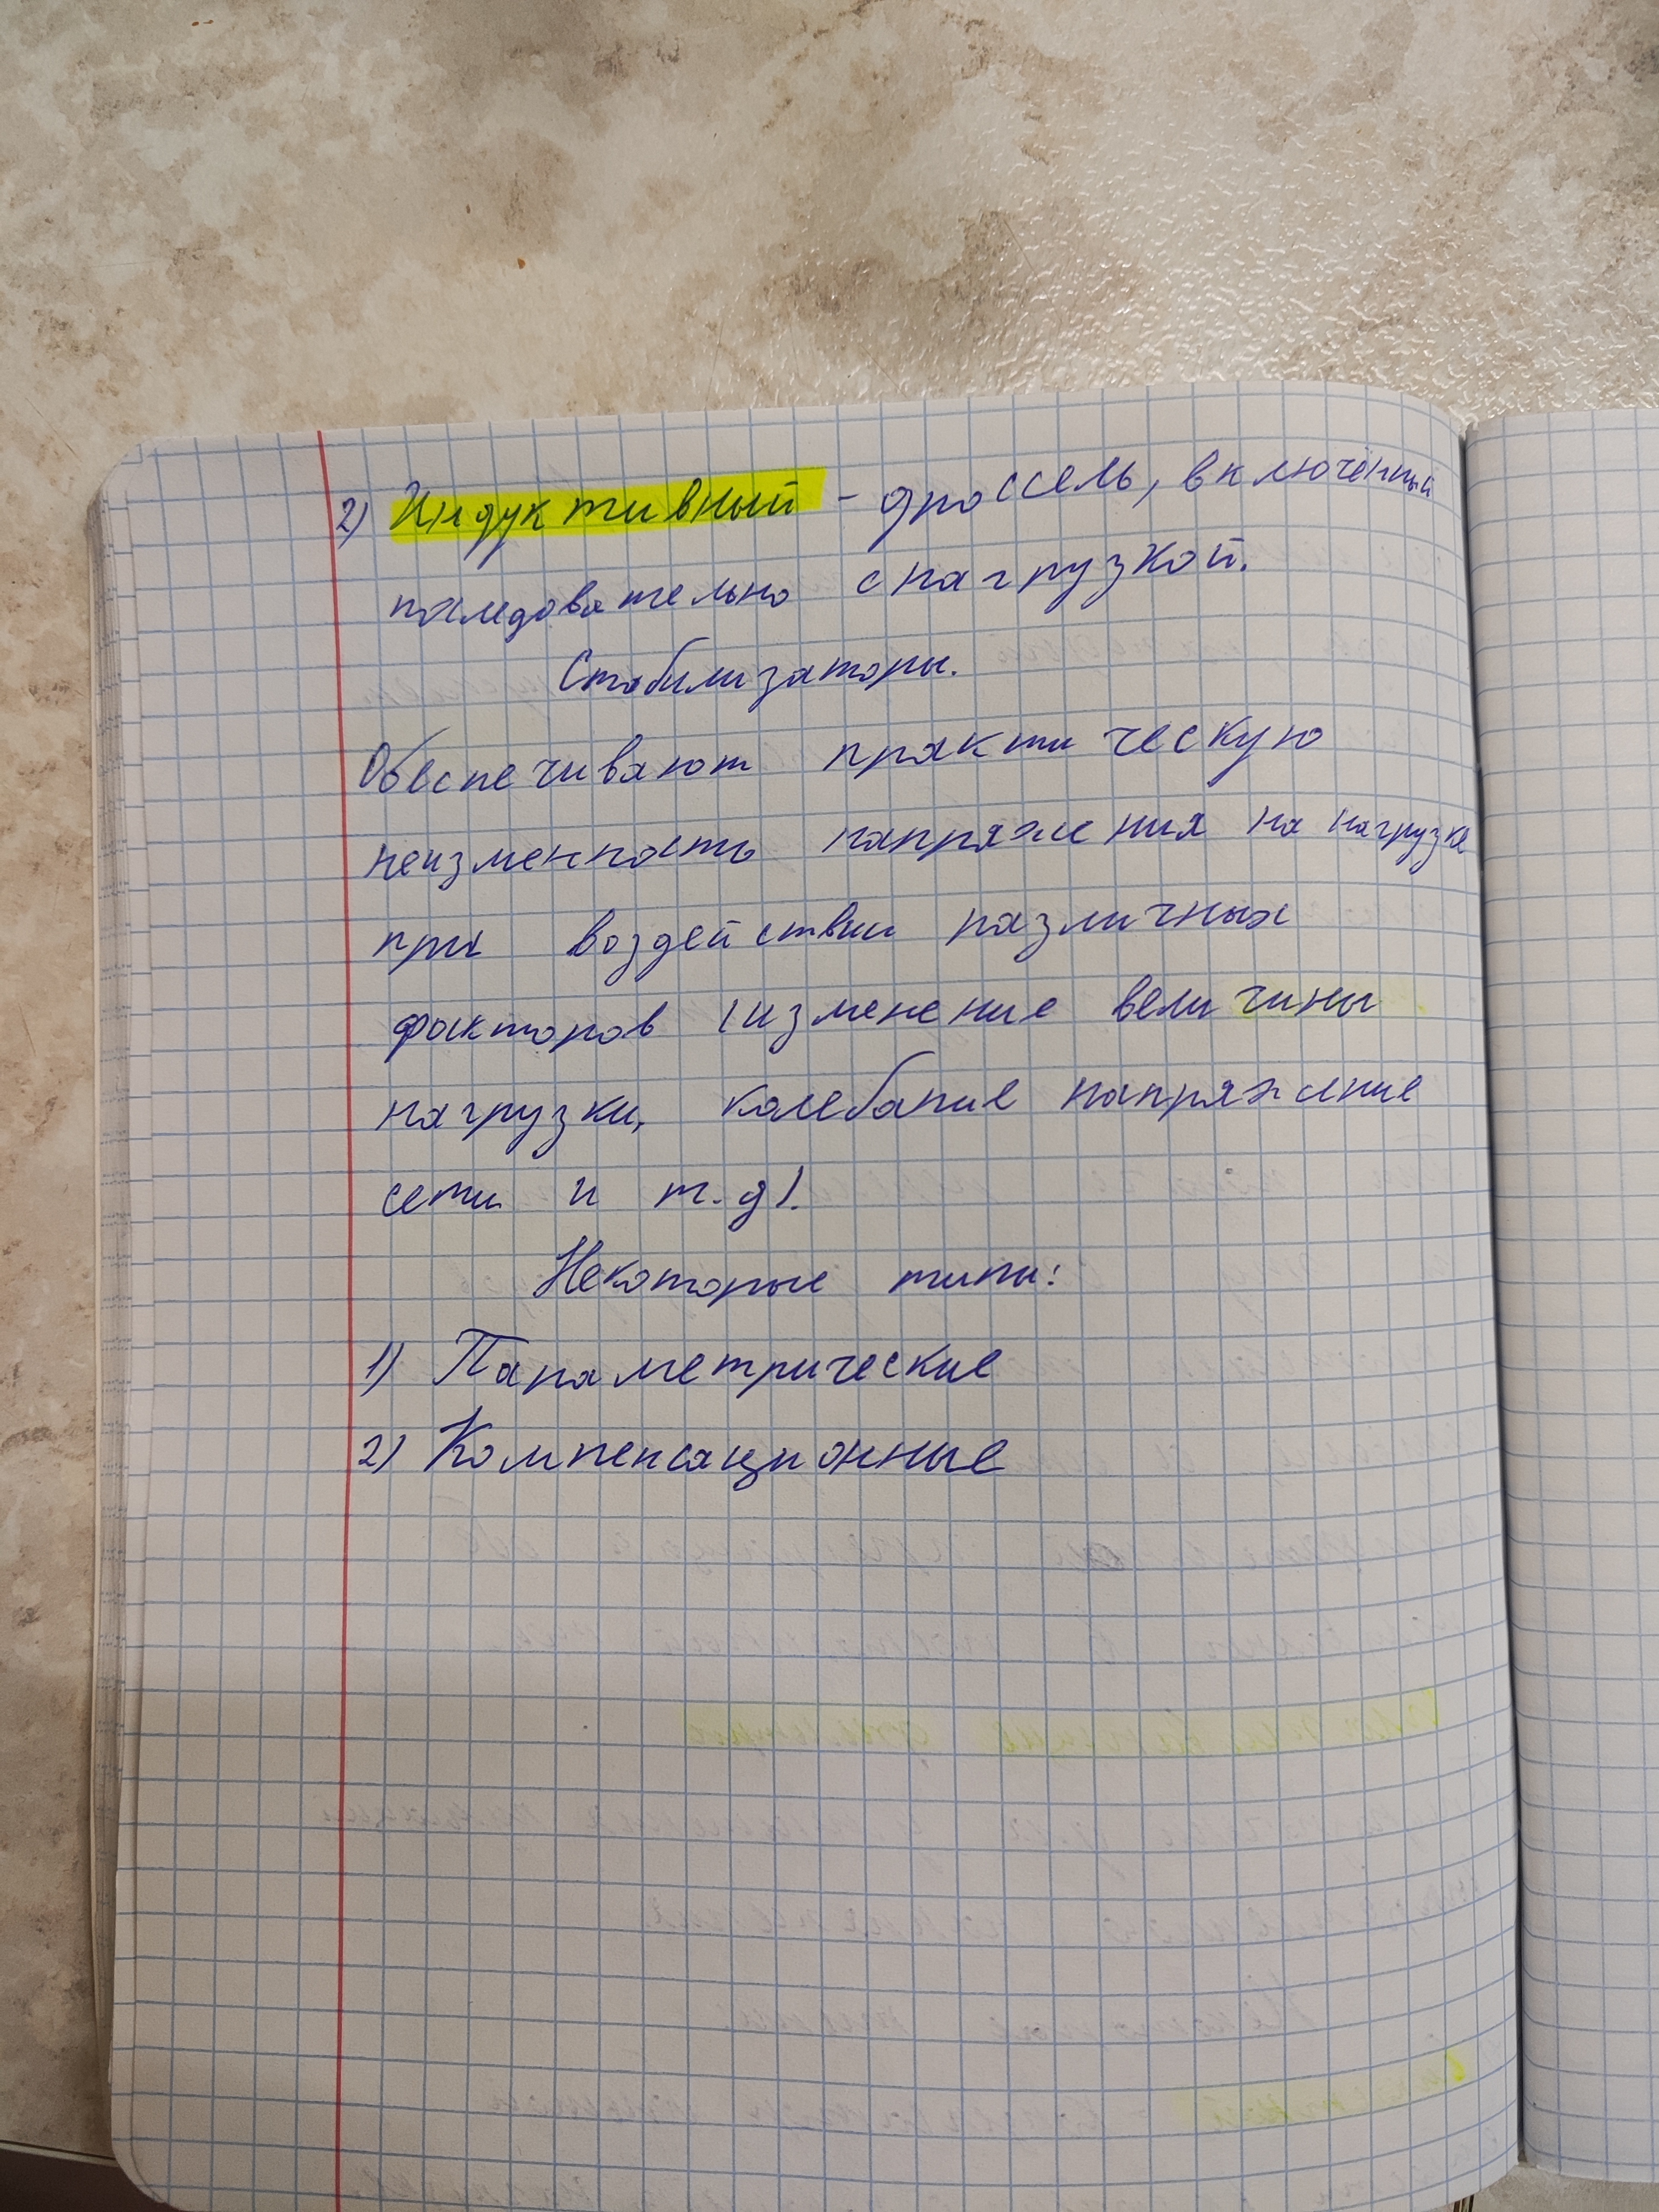 2) Индуктивный - дроссель, включённый
последовательно с нагрузкой.
Стабилизаторы.
Обеспечивают практическую
неизменность напряжения на нагрузке
при воздействии различных
факторов (изменение величины
нагрузки, колебание напряжение
сети и т.д).
Некоторые типы:
1) Параметрические
2) Компенсационные